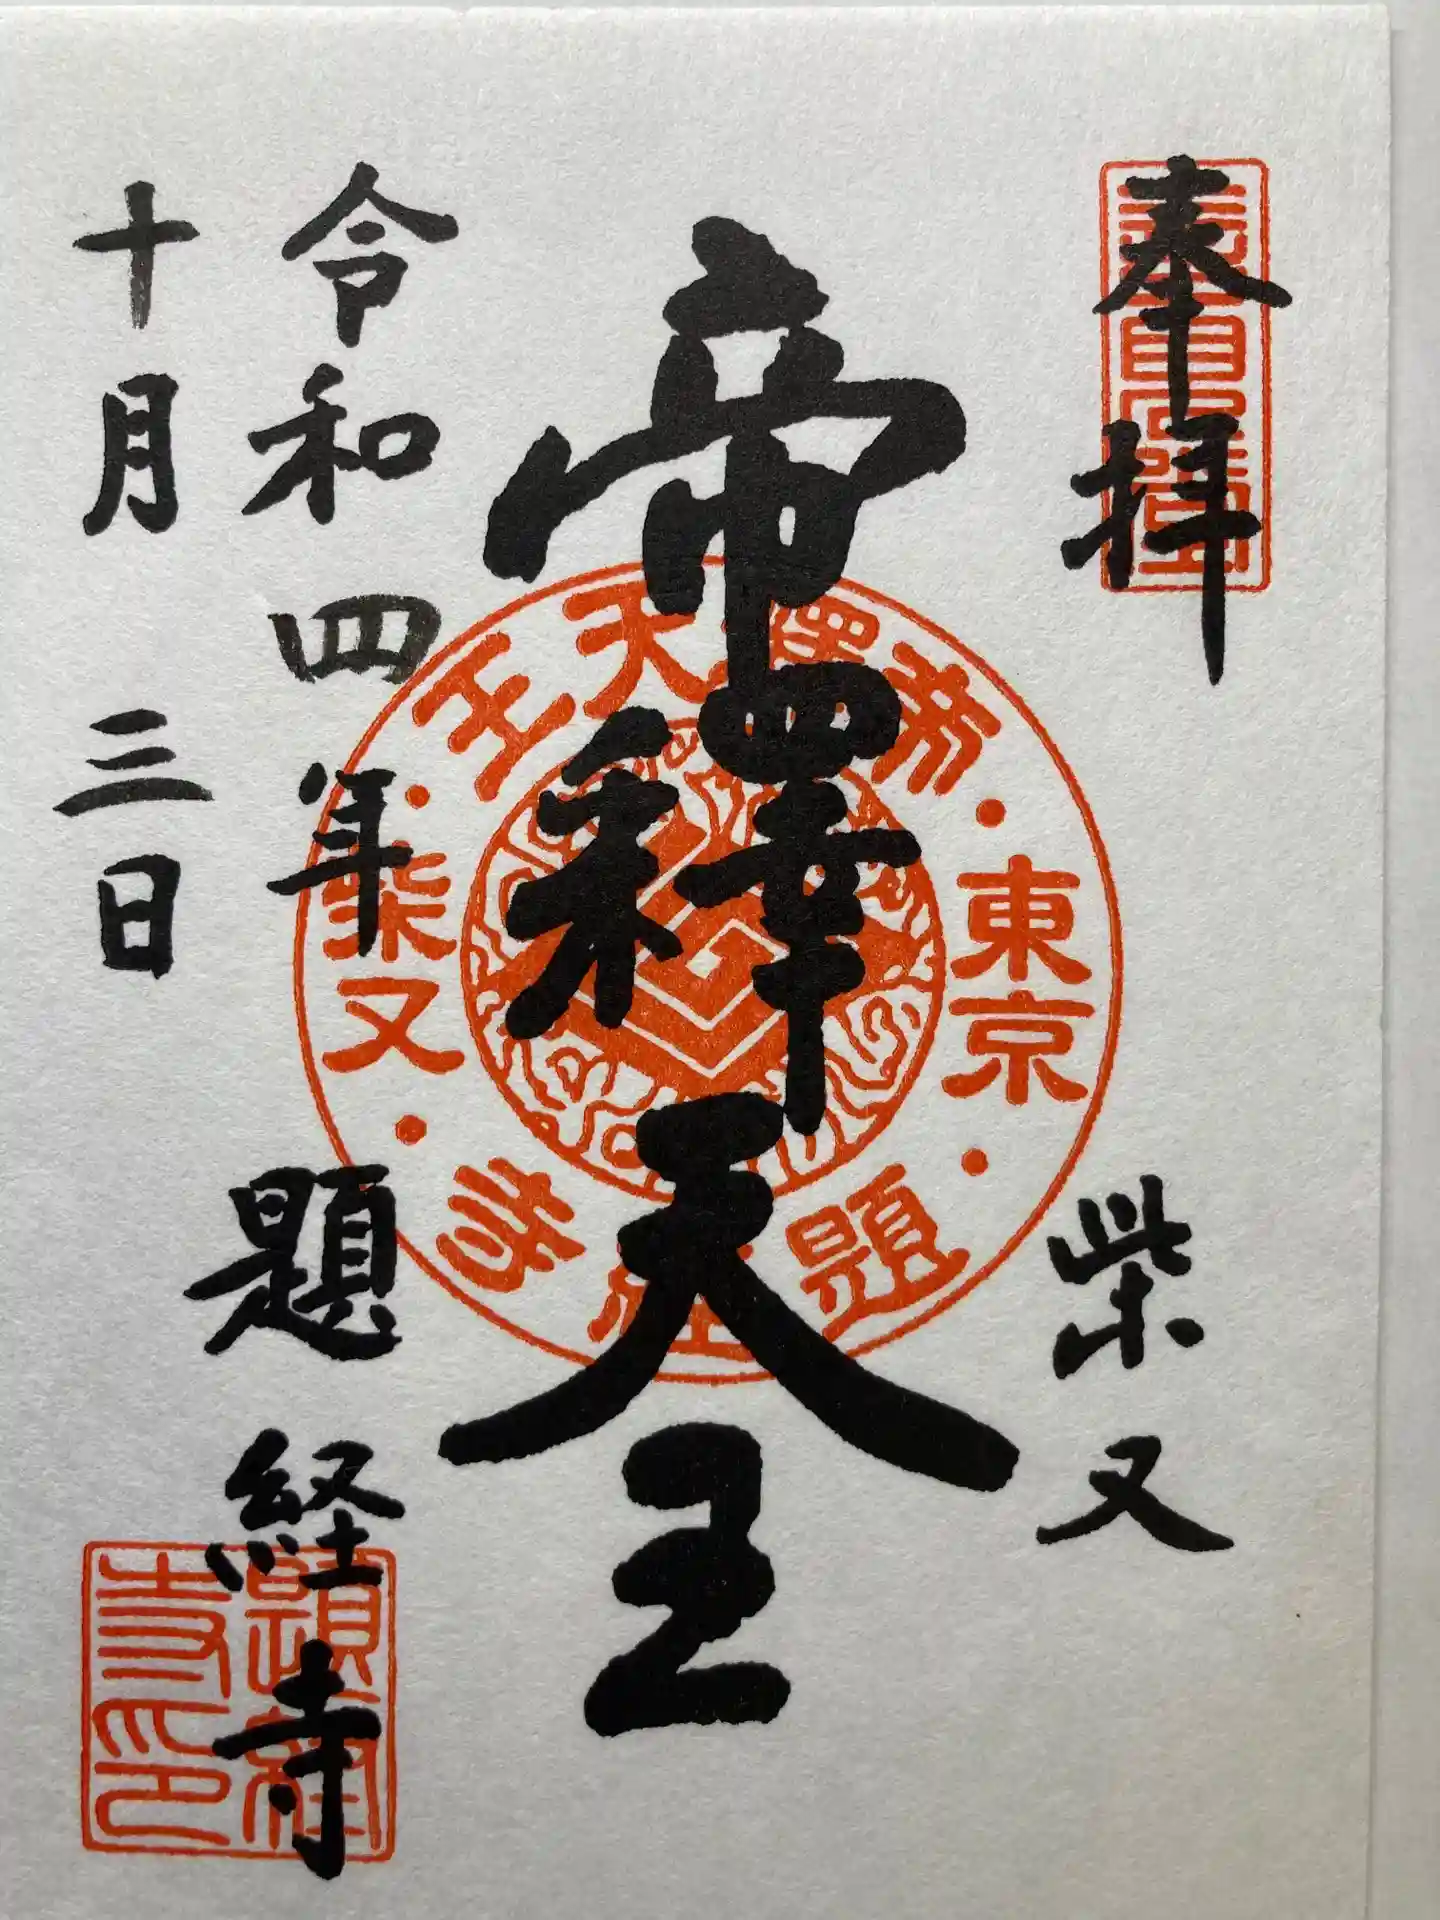 奉拝
柴又
帝釋天王
令和四年
十月三日
題経寺
東京
帝釋天王
柴又
題経寺
題経寺印